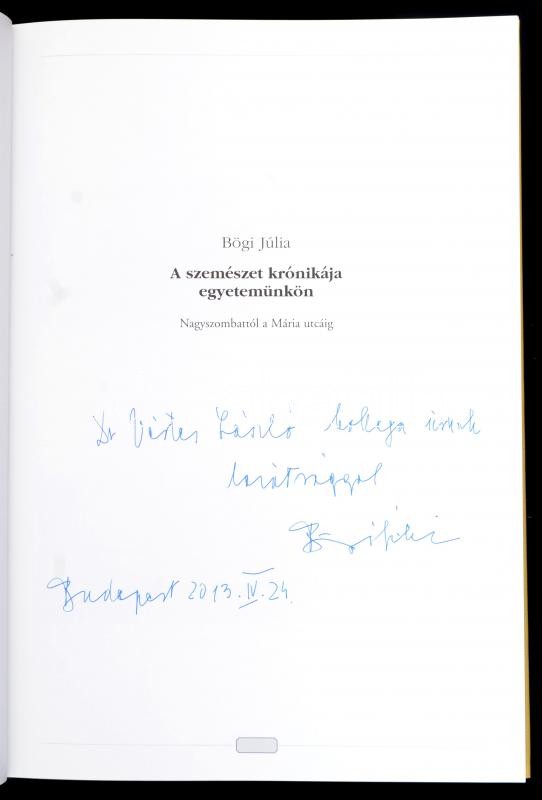 Bögi Júlia
A szemészet krónikája
egyetemünkön
Nagyszombattól a Mária utcáig
Dr László kollega úrnak
barátsággal
Budapest 2013. IV. 24.